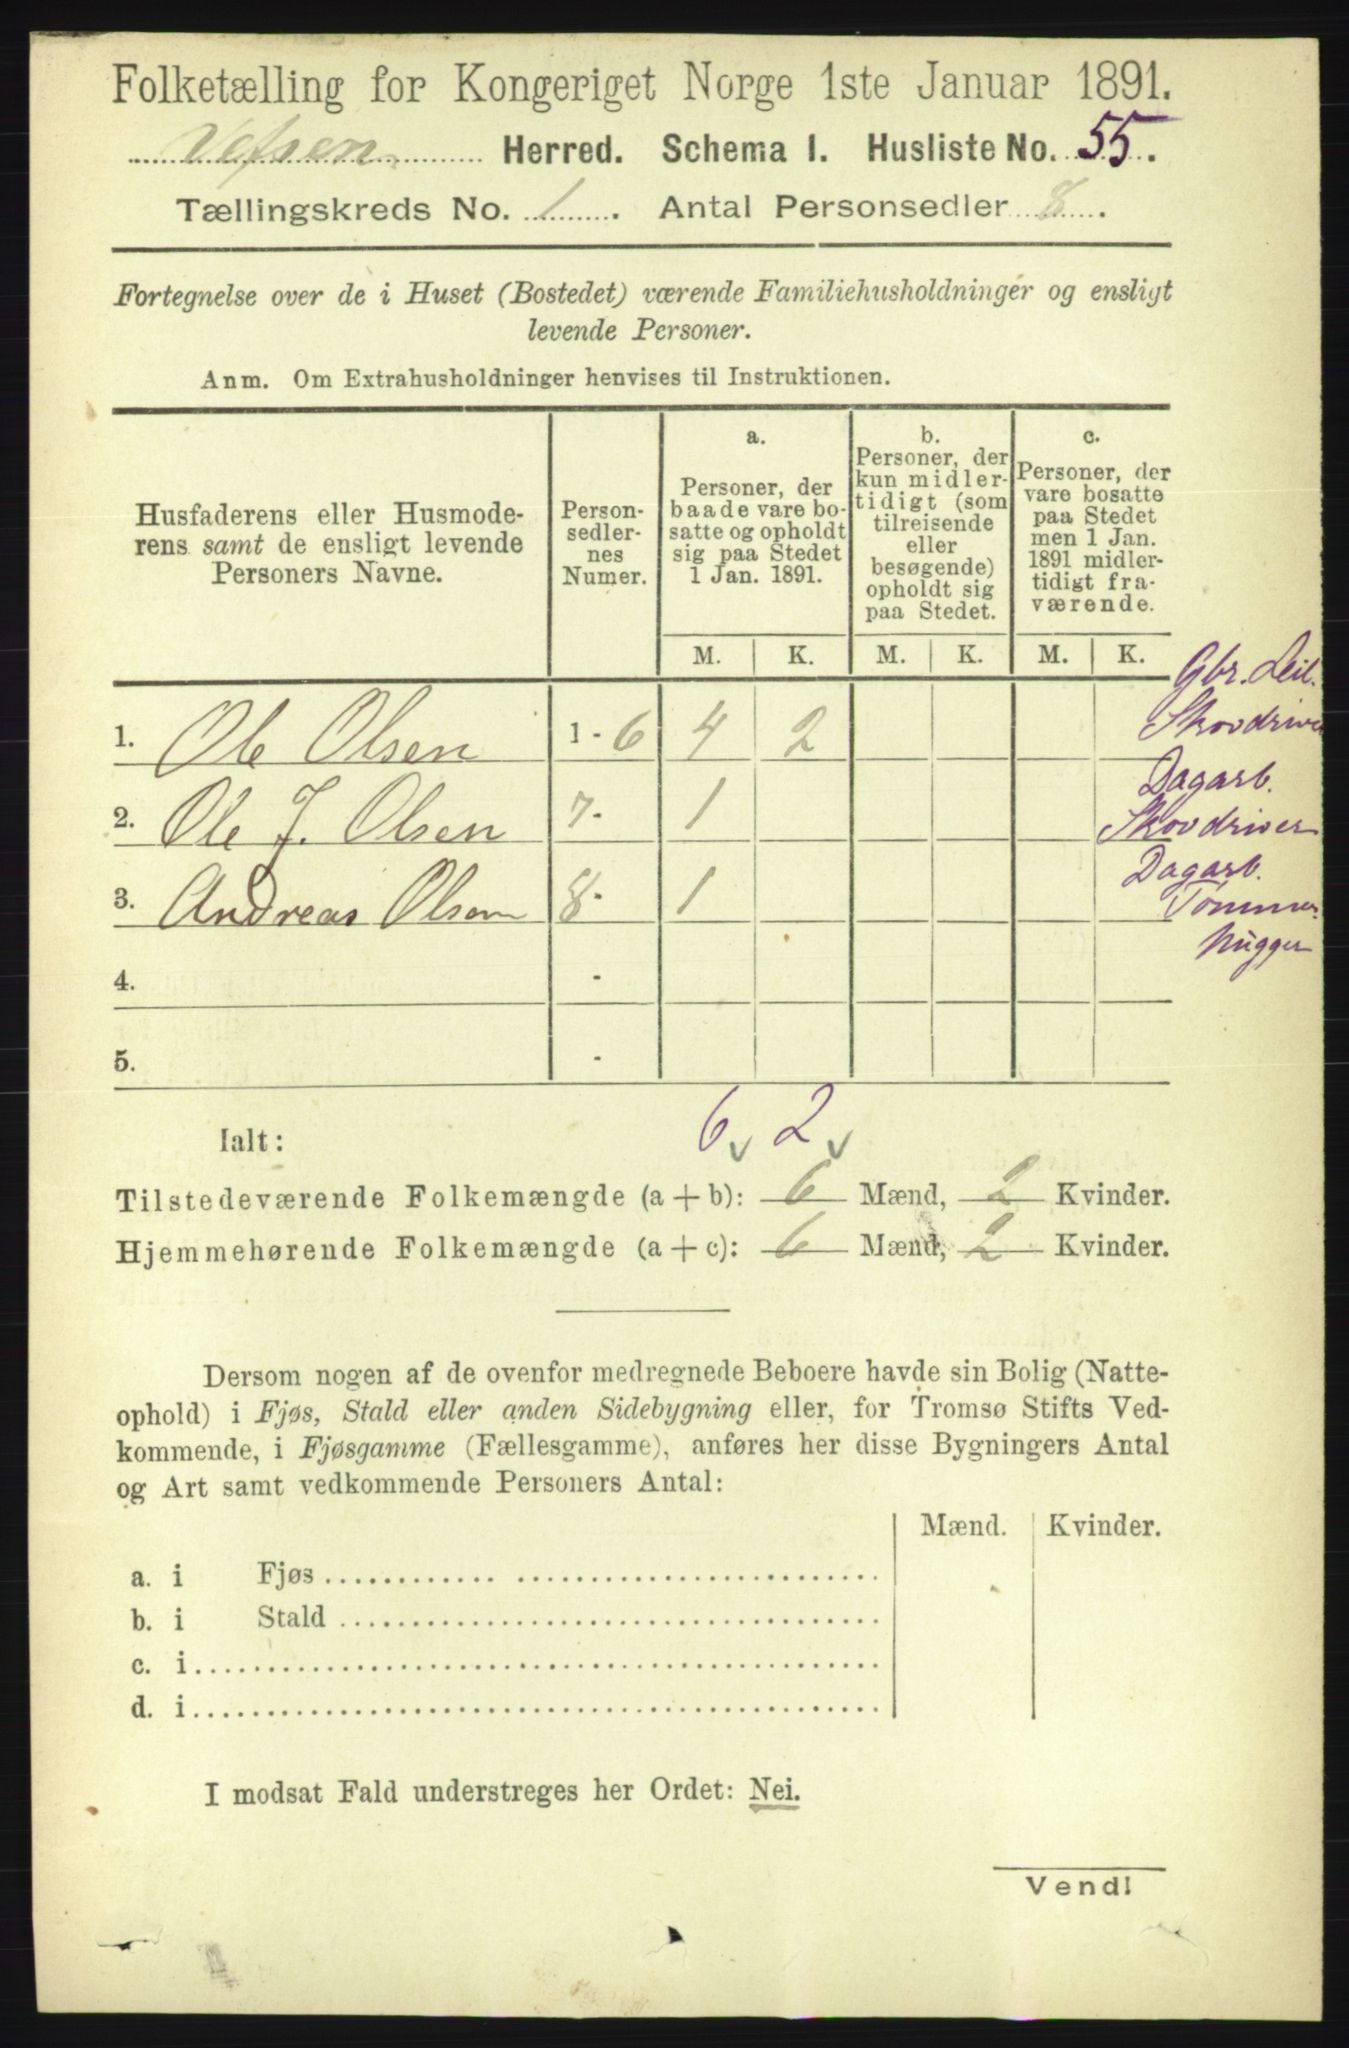 Folketælling for Kongeriget Norge 1ste Januar 1891.
Vefsen Herred. Schema I. Husliste No. 55.
Tællingskreds No. 1. Antal Personsedler 8.
Fortegnelse over de i Huset (Bostedet) værende Familiehusholdninger og ensligt
levende Personer.
Anm. Om Extrahusholdninger henvises til Instruktionen.
Husfaderens eller Husmode-
rens samt de ensligt levende
Personers Navne.
Person-
sedler-
nes
Numer.
a.
Personer, der
baade vare bo-
satte og opholdt
sig paa Stedet
1 Jan. 1891.
b.
Personer, der
kun midler-
tidigt (som
tilreisende
eller
besøgende)
opholdt sig
paa Stedet.
c.
Personer, der
vare bosatte
paa Stedet
men 1 Jan.
1891 midler-
tidigt fra-
værende.
M. K. M. K. M. K.
Gbr. Leil.
1. Ole Olsen 1 - 6 4 2 Skovdriver
Dagarb.
2. Ole J. Olsen 7 - 1 Skovdriver
Dagarb.
3. Andreas Olsen 8 - 1 Tømmer-
hugger
4. -
5. -
Ialt: 6 2
Tilstedeværende Folkemængde (a + b): 6 Mænd, 2 Kvinder.
Hjemmehørende Folkemængde (a + c): 6 Mænd, 2 Kvinder.
Dersom nogen af de ovenfor medregnede Beboere havde sin Bolig (Natte-
ophold) i Fjøs, Stald eller anden Sidebygning eller, for Tromsø Stifts Ved-
kommende, i Fjøsgamme (Fællesgamme), anføres her disse Bygningers Antal
og Art samt vedkommende Personers Antal:
Mænd. Kvinder.
a. i Fjøs
b. i Stald
c. i
d. i
I modsat Fald understreges her Ordet: Nei.
Vend!